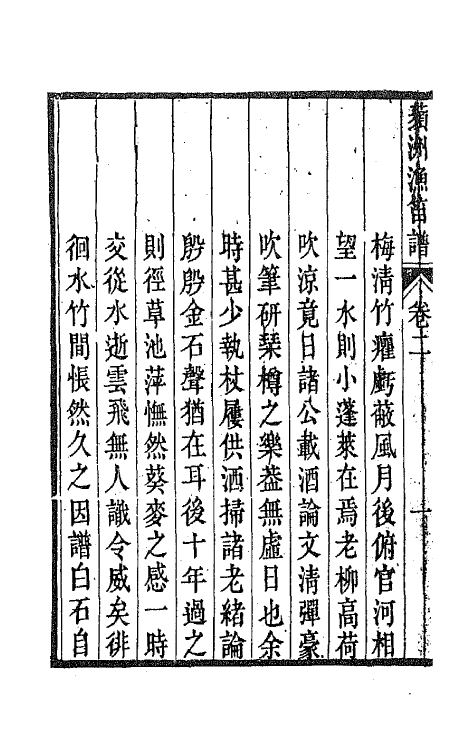 蘋洲漁笛譜 卷二 十
梅清竹癯虧蔽風月後俯官河相
望一水則小蓬萊在焉老柳高荷
吹涼竟日諸公載酒論文清彈豪
吹筆研琹樽之樂葢無虛日也余
時甚少執杖屨供洒掃諸老緒論
殷殷金石聲猶在耳後十年過之
則徑草池萍憮然葵麥之感一時
交從水逝雲飛無人識令威矣徘
徊水竹間悵然久之因譜白石自